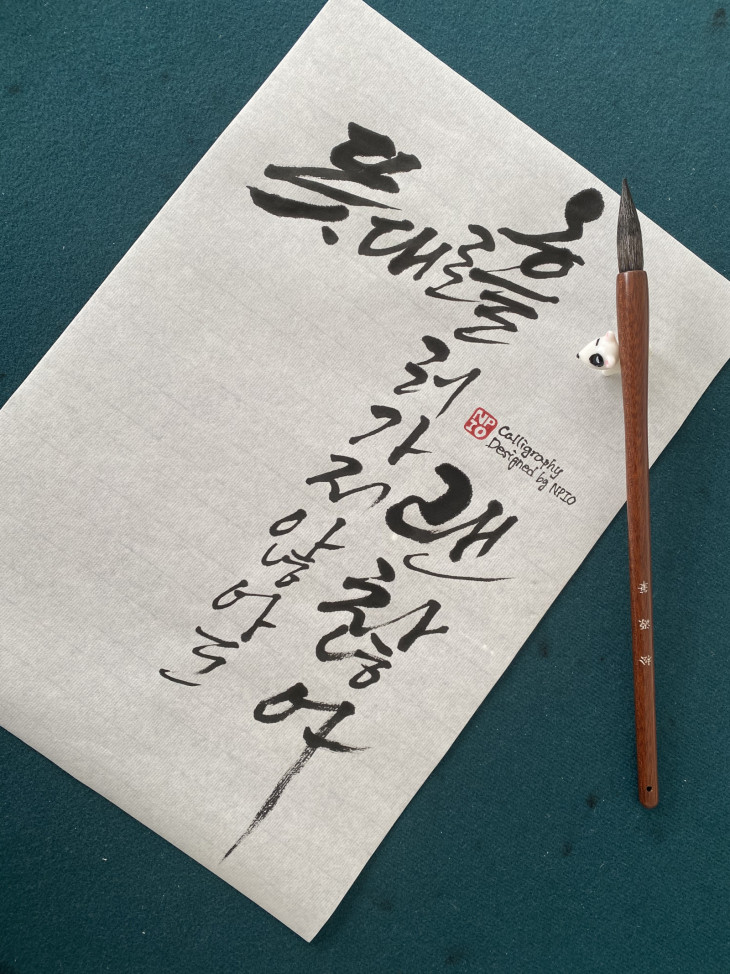 뜻대로흘
러
가
지
않
아
도
괜
찮
아
NP
IO
Calligraphy
Designed by NPIO